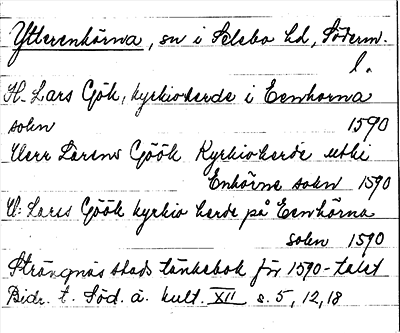 Ytterenhörna, sn i Selebo hd, Söderm.
l.
H. Lars Gök, kyrkioherde i Eenhorna
sokn 1590
Herr Larens Göök Kyrkioherde uthi
Enhörne sokn 1590
H. Lares Göök kyrkio herde på Eenhörna
sokn 1590
Strängnäs stads tänkebok för 1590-talet
Bidr. t. Söd. ä. kult. XII s. 5, 12, 18